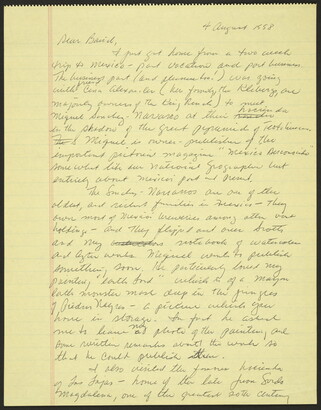 4 August 1998
Dear Baird,
I just got home from a two week
trip to Mexico - part vacation and part business.
The business part (and pleasure too!) was going
with Ceia Alexander (her family, the Kleberg, are
majority owners of the King Ranch) to meet
Miguel Sanchez Navarro at their hacienda
in the shadow of the great pyramid of Teotihuacan.
Miguel is owner-publisher of the
important picture magazine "Mexico Desconocido"
somewhat like our National Geographic but
entirely about Mexico past and present.
The Sanchez-Navarros are one of the
oldest, and richest families in Mexico - they
own most of Mexico's breweries among other vine
holdings - And they flipped out over Scotts
and my notebook of watercolors
and other works. Miguel wants to publish
something soon. He particularly loved my
painting "Earth Lord" which is of a Mayan
earth monster mask deep in the jungles
of Piedras Negras - a picture which you
have in storage. In fact he asked
me to leave a photo of the painting, and
some written remarks about the work so
that he could publish them.
I also visited the former hacienda
of Las Lajas - home of the late
Magdalena, one of the greatest 20th century